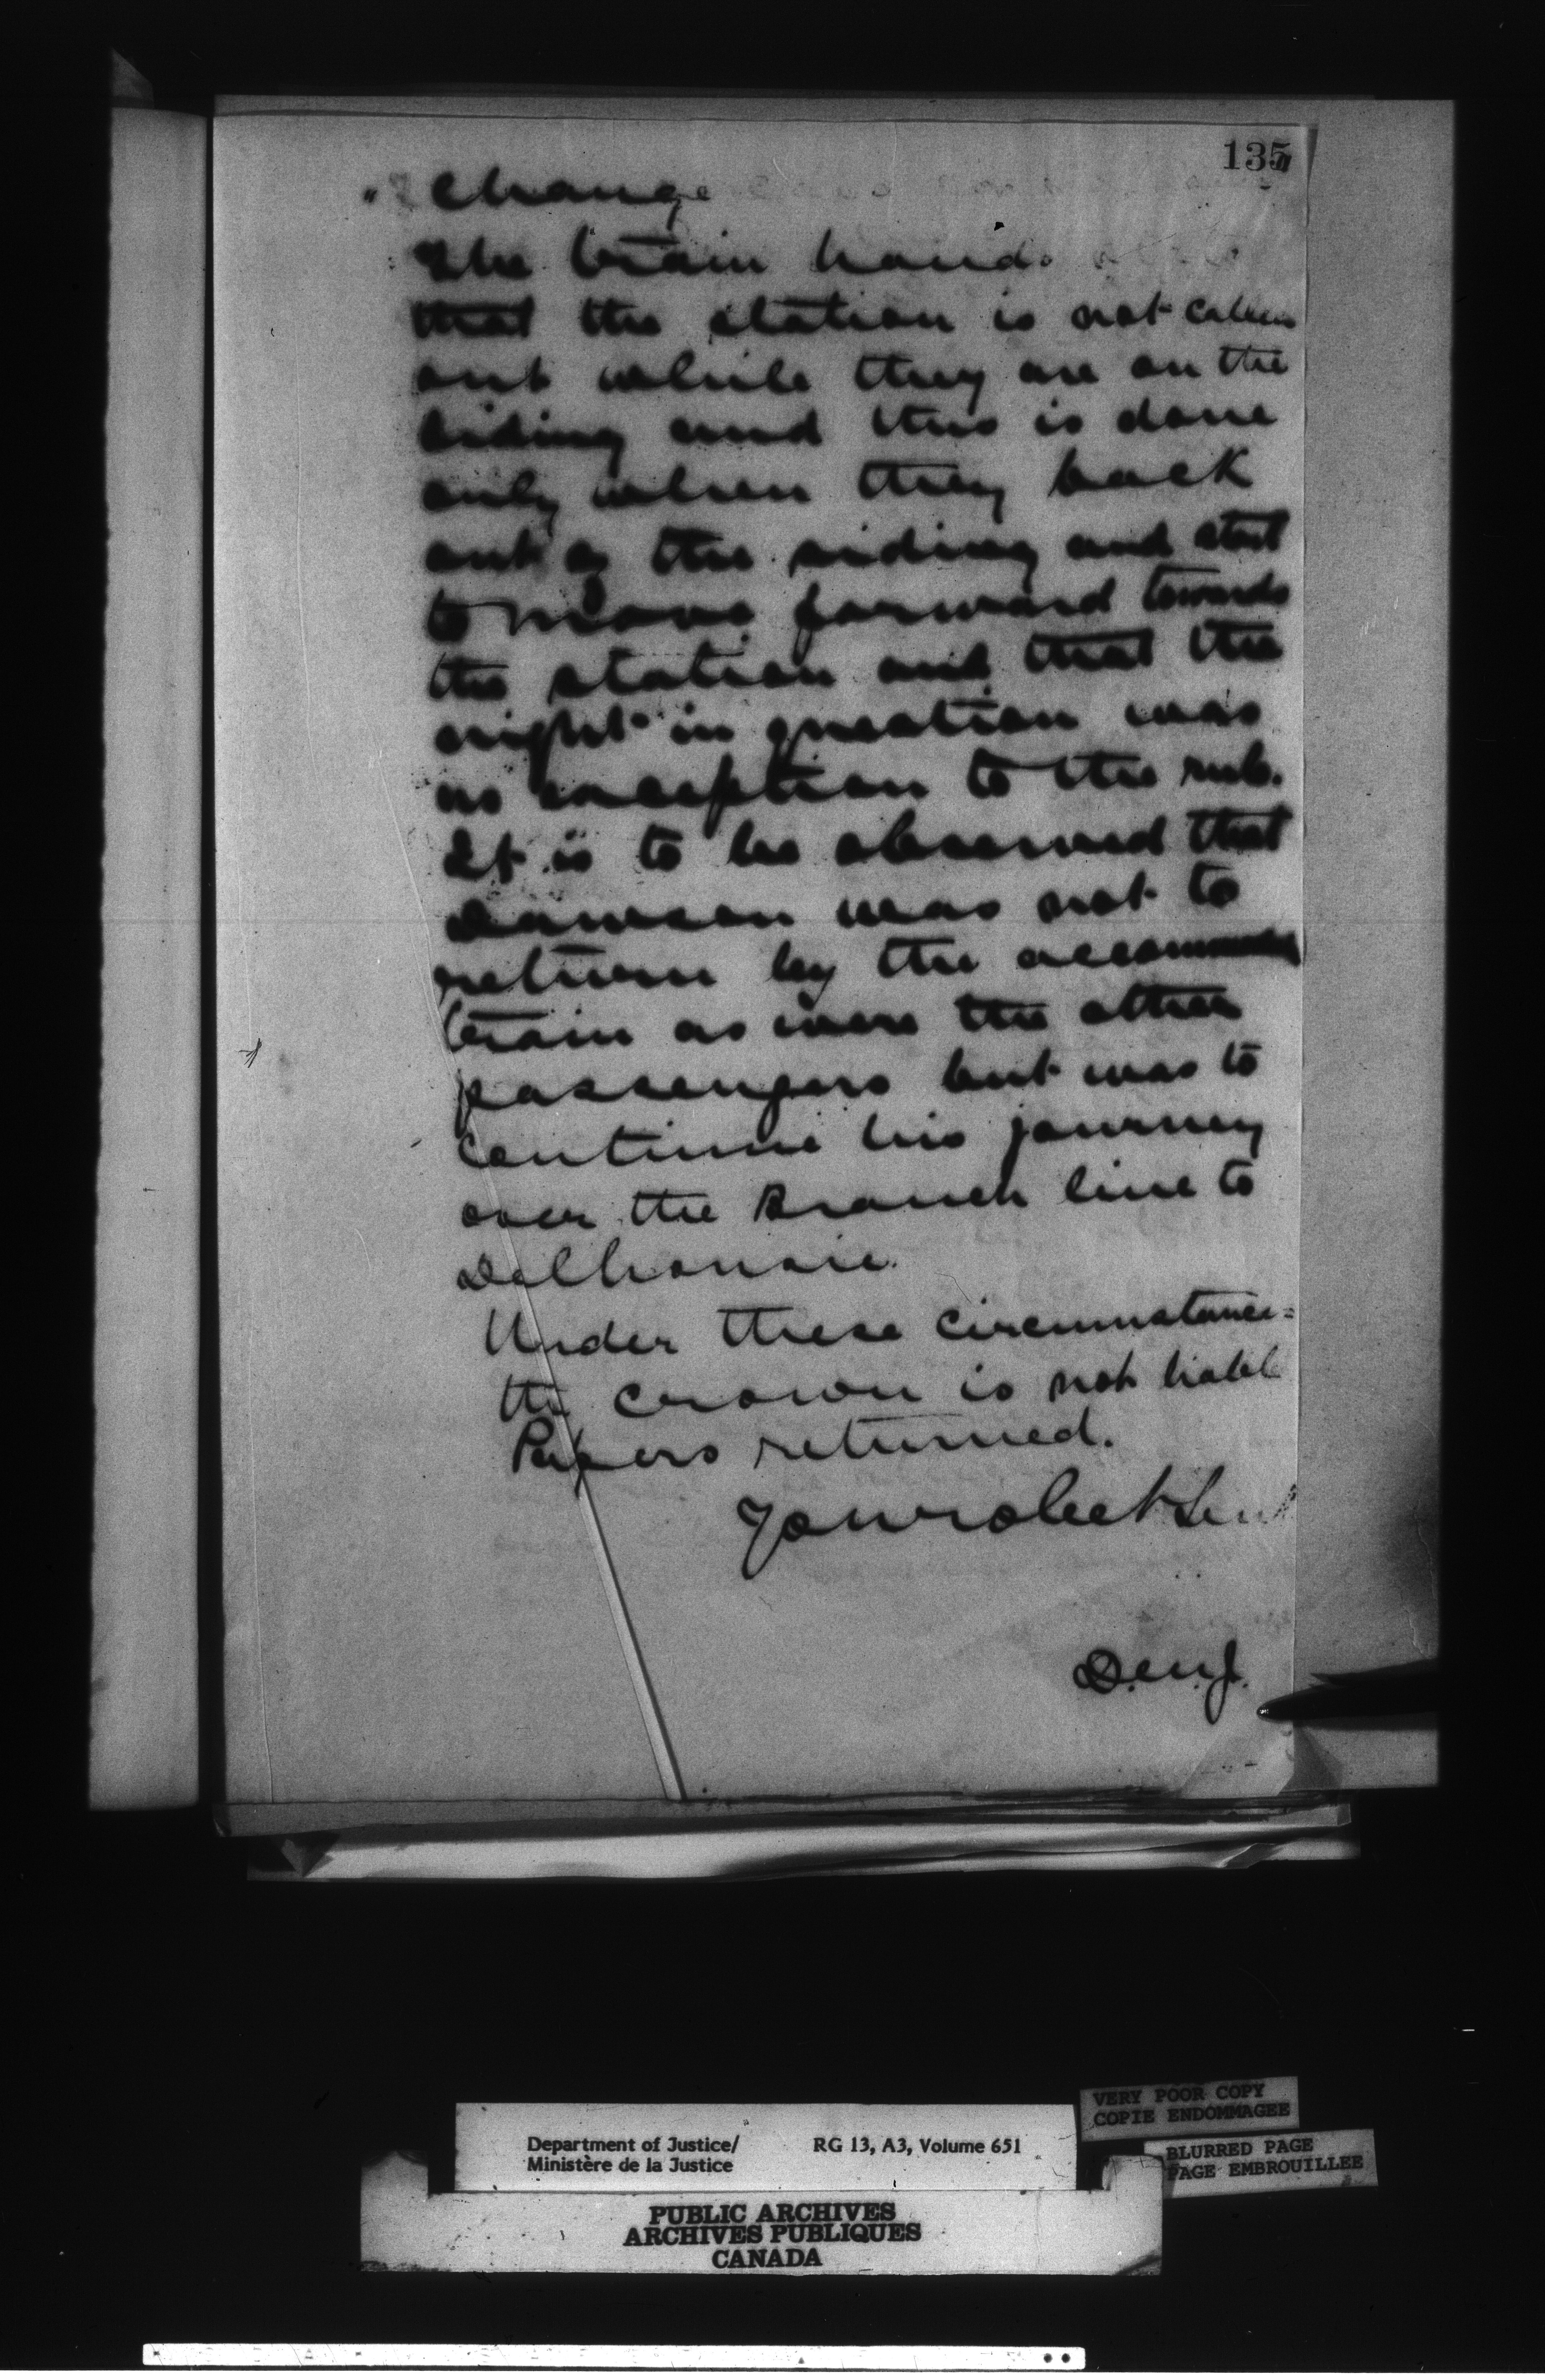 135
" change
The train hands
that the station is not called
out while they are on the
siding and this is done
only when they back
out of the siding and start
to move forward towards
the station and that the
night in question was
no exception to the rule.
It is to be observed that
Dawson was not to
return by the accommodn
train as were the other
passengers but was to
continue his journey
over the Branch line to
Dalhousie.
Under these circumstances
the crown is not liable
Papers returned.
Your obedt Servt
D.M.J.
VERY POOR COPY
COPIE ENDOMMAGEE
BLURRED PAGE
PAGE EMBROUILLEE
Department of Justice/ RG 13, A3, Volume 651
Ministère de la Justice
PUBLIC ARCHIVES
ARCHIVES PUBLIQUES
CANADA